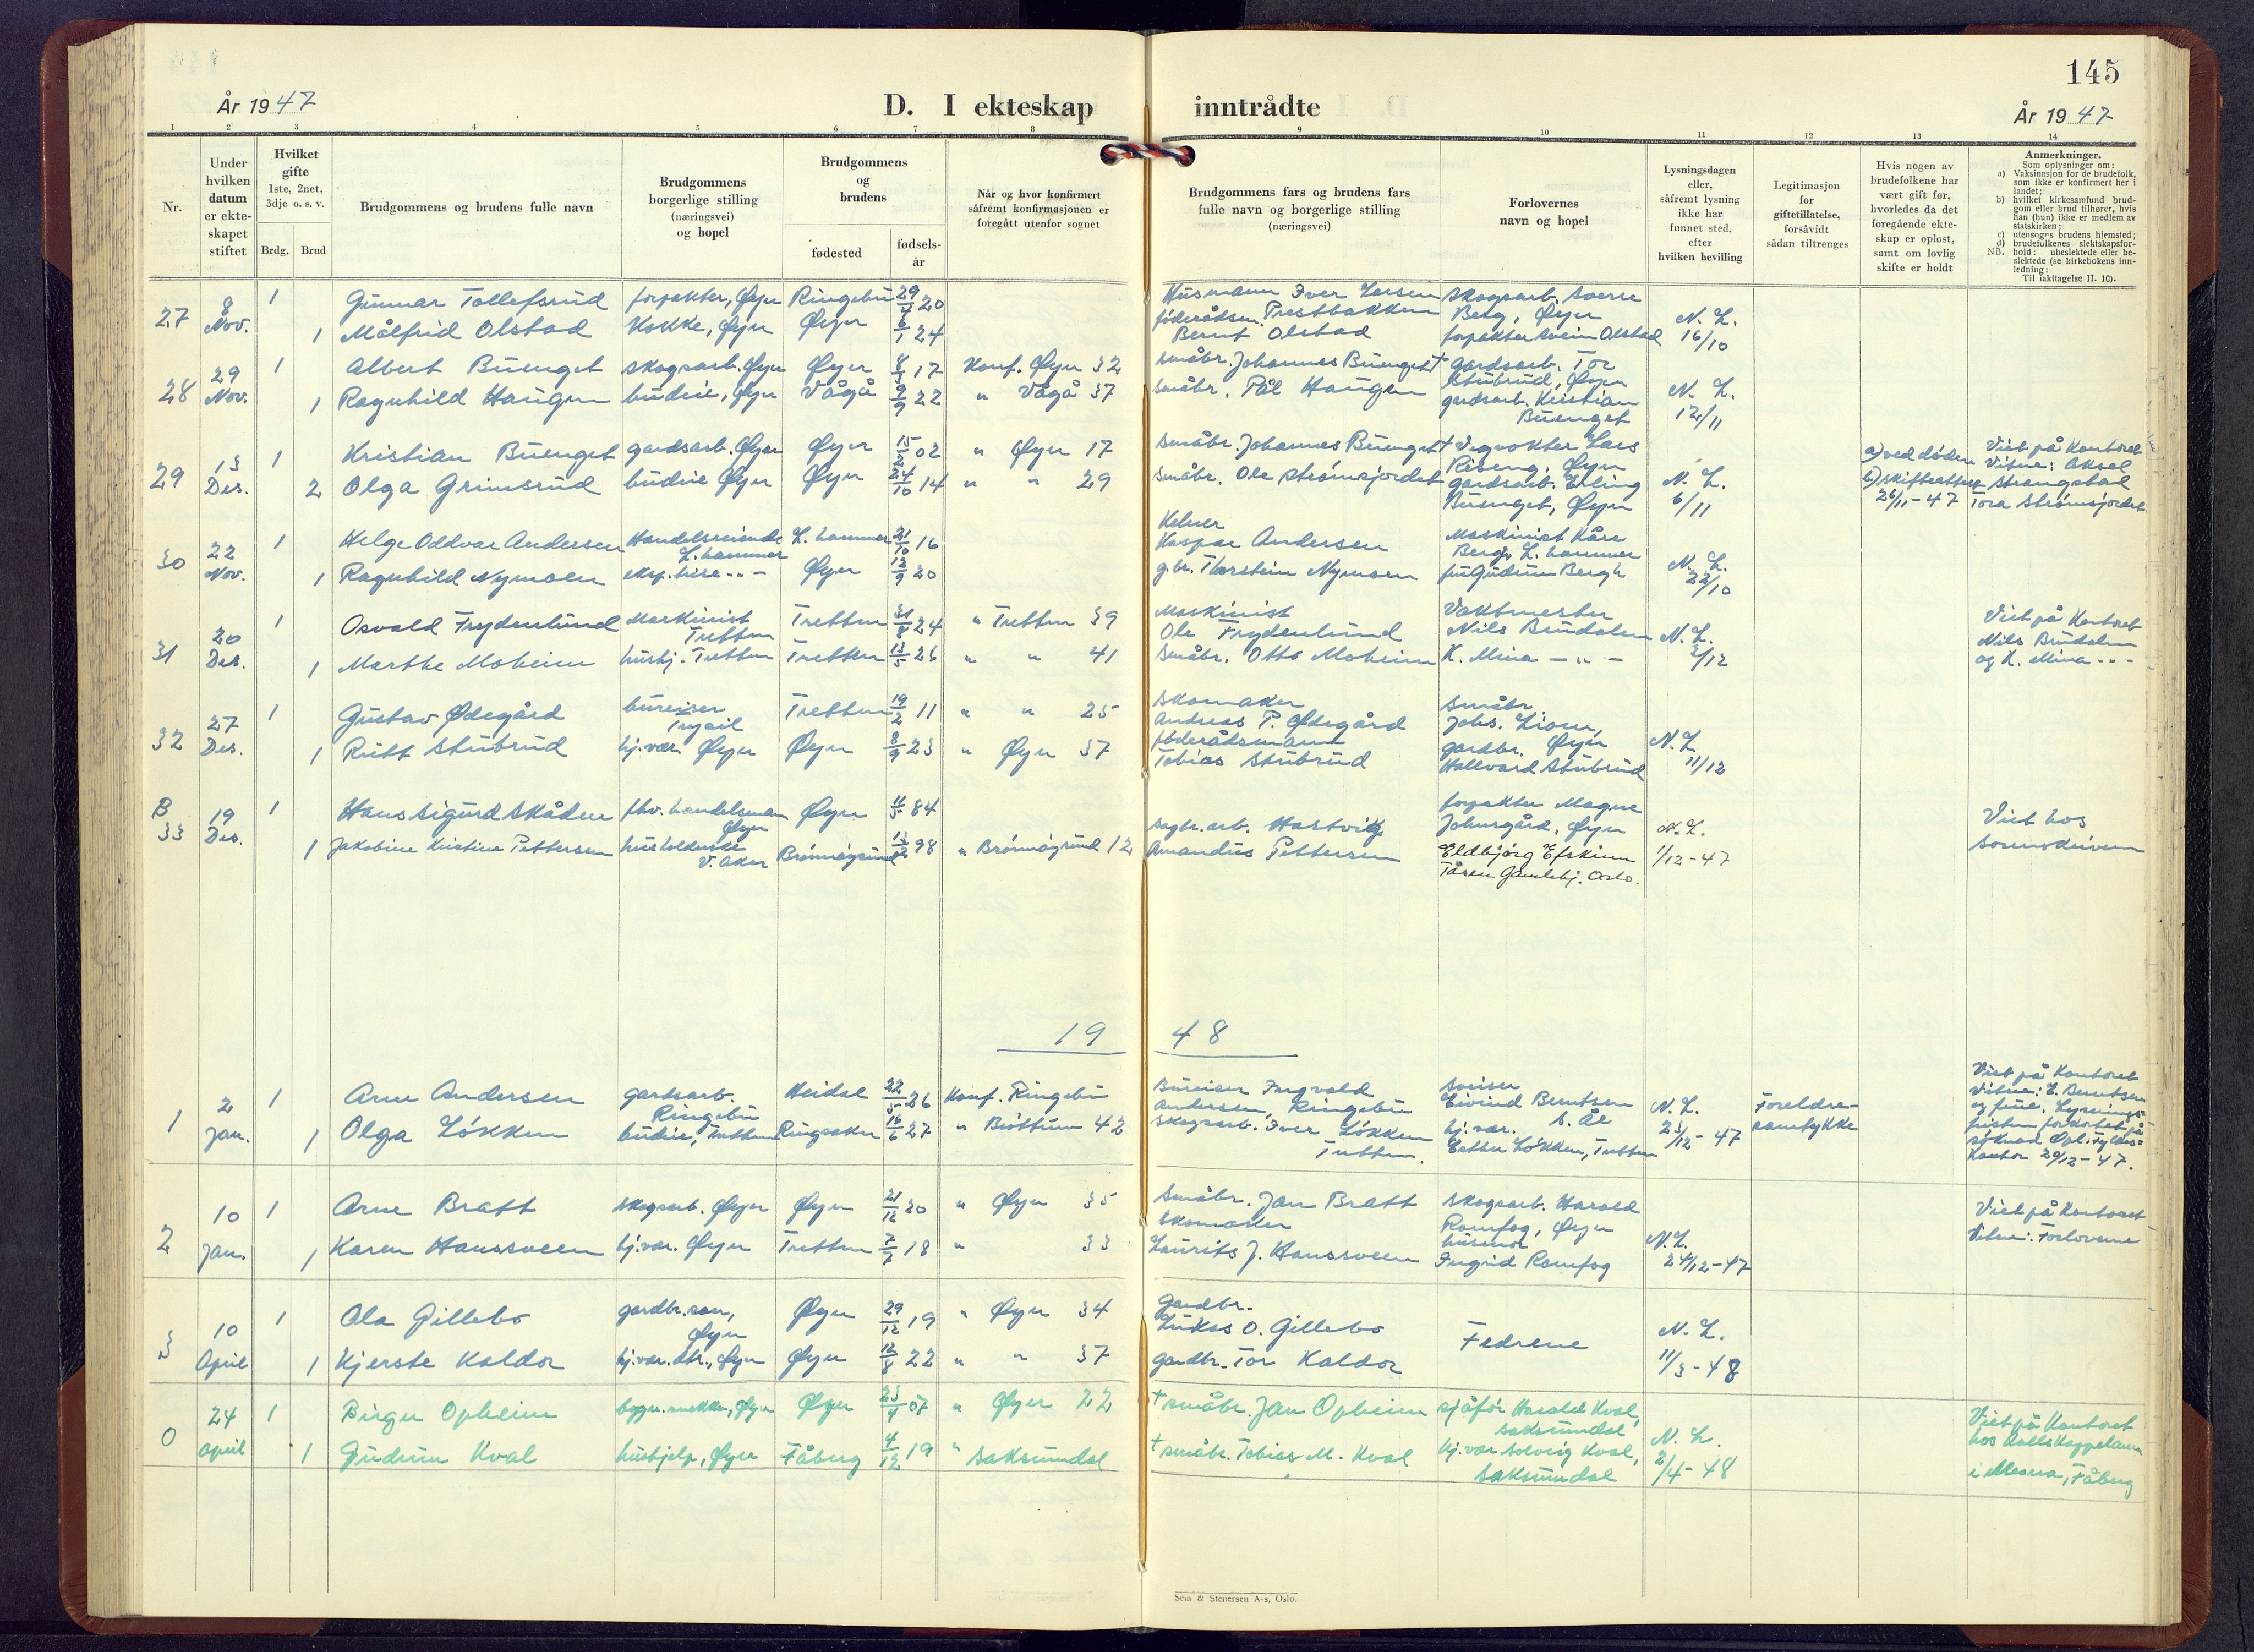 145
År 1947
D. I ekteskap inntrådte
År 1947
1 2 3 4 5 6 7 8 9 10 11 12 13 14
Nr.
Under hvilken datum er ekteskapet stiftet
Hvilket gifte 1ste, 2net, 3dje o. s. v.
Brdg. Brud
Brudgommens og brudens fulle navn
Brudgommens borgerlige stilling (næringsvei) og bopel
Brudgommens og brudens
fødested
fødsels-år
Når og hvor konfirmert såfremt konfirmasjonen er foregått utenfor sognet
Brudgommens fars og brudens fars fulle navn og borgerlige stilling (næringsvei)
Forlovernes navn og bopel
Lysningsdagen eller, såfremt lysning ikke har funnet sted, efter hvilken bevilling
Legitimasjon for giftetillatelse, forsåvidt sådan tiltrenges
Hvis nogen av brudefolkene har vært gift før, hvorledes da det foregående ekteskap er opløst, samt om lovlig skifte er holdt
Anmerkninger.
Som oplysninger om:
a) Vaksinasjon for de brudefolk, som ikke er konfirmert her i landet;
b) hvilket kirkesamfund brudgom eller brud tilhører, hvis han (hun) ikke er medlem av statskirken;
c) utensogns brudens hjemsted;
d) brudefolkenes slektskapsforhold: ubeslektede eller beslektede (se kirkebokens innledning:
NB. Til iakttagelse II. 10).
27 8 Nov. 1 Gunnar Tollefsrud forpakter, Øyer Ringebu 29/4 20 Husmann Iver Larsen Prestbakken skogsarb. Sverre Berg, Øyer N. L. 16/10
1 Målfrid Olstad Kokke, Øyer Øyer 6/1 24 føderådsm. Bernt Olstad forpakter Svein Olstad
28 29 Nov. 1 Albert Buenget skogsarb. Øyer Øyer 17 Konf. Øyer 32 småbr. Johannes Buenget† gardsarb. Tor Stubrud, Øyer N. L. 12/11
1 Ragnhild Haugen budeie, Øyer Vågå 9/9 22 " Vågå 37 småbr. Pål Haugen gardsarb. Kristian Buenget
29 13 Des. 1 Kristian Buenget gardsarb. Øyer Øyer 15/2 02 " Øyer 17 småbr. Johannes Buenget† Vegvokter Lars Riseng, Øyer N. L. 6/11 a) ved døden b) skifteattest 26/11-47 Viet på kontoret Vitne: Aksel Strangstad
2 Olga Grimsrud budeie Øyer Øyer 24/10 14 " " 29 småbr. Ole Strømsjordet gardsarb. Erling Buenget, Øyer Tora Strømsjordet
30 22 Nov. 1 Helge Oddvar Andersen Handelsreisende L. hammer L. hammer 21/10 16 Kelner Kaspar Andersen Maskinist Kåre Bergh L. hammer N. L. 22/10
1 Ragnhild Nymoen eksp. trise -"- Øyer 12/9 20 g.br. Thorstein Nymoen fru Gudrun Bergh
31 20 Des. 1 Osvald Frydenlund Maskinist Tretten Tretten 31/8 24 " Tretten 39 Maskinist Ole Frydenlund Vaktmester Nils Brudalen N. L. 2/12 Viet på kontoret Nils Brudalen
1 Marthe Moheim hushj. Tretten Tretten 13/5 26 " " 41 småbr. Otto Moheim K. Mina -"- og K. Mina -"-
32 27 Des. 1 Gustav Ødegård bureiser Trysil Tretten 19/2 11 " " 25 skomaker Andreas P. Ødegård småbr. Johs. Lien, Øyer N. L. 11/12
1 Rutt Stubrud hj.vær. Øyer Øyer 8/9 23 " Øyer 37 føderådsmann Tobias Stubrud gardbr. Hallvard Stubrud
B 33 19 Des. 1 Hans Sigurd Skåden fhv. handelsman Øyer Øyer 11/5 84 forpakter Magne Johnsgård, Øyer N. L. 1/12-47 Viet hos sorenskriveren
1 Jakobine Kristine Pettersen husholderske V. Aker Brönnøysund 98 " Brönnøysund 12 sagbr.arb. Hartvig Amandus Pettersen Eldbjørg Efskinn Tåsen Gamlehj. Oslo.
1948
1 2 Jan. 1 Arne Andersen gardsarb. Ringebu Heidal 22/5 26 Konf. Ringebu Bureiser Ingvald Andersen, Ringebu Sveiser Eivind Berntsen S. Ål N. L. 23/12-47 Foreldresamtykke Viet på kontoret Vitne: E. Berntsen og frue. Lysningsfristen forkortet på søknad Opl. fylkeskontor 29/12-47.
1 Olga Løkken budeie, Tretten Ringsaker 16/6 27 " Brøttum 42 skogsarb. Iver Løkken Tretten. hj.vær. Esther Løkken, Tretten
2 10 Jan. 1 Arne Bratt skogsarb. Øyer Øyer 21/12 20 " Øyer 35 småbr. Jan Bratt skogsarb. Harald Romfog, Øyer N. L. 24/12-47 Viet på kontoret Vitne: Forloverne
1 Karen Hanssveen hj.vær. Øyer Tretten 7/7 18 " 33 skomaker Laurits J. Hanssveen husmor Ingrid Romfog
3 10 April 1 Ola Gillebo gardbr.søn, Øyer Øyer 29/12 19 " Øyer 34 gardbr. Lukas O. Gillebo Fedrene N. L. 11/3-48
1 Kjerste Kaldor hj.vær. dtr., Øyer Øyer 12/8 22 " " 37 gardbr. Tor Kaldor
0 24 April 1 Birger Opheim bygn.snekker, Øyer Øyer 23/4 07 " Øyer 22 † småbr. Jan Opheim sjåfør Harald Kval, Saksumdal N. L. 2/4-48 Viet på kontoret hos kallskappelanen i Mesna, Fåberg
1 Gudrun Kval hushjelp, Øyer Fåberg 4/12 19 " Saksumdal † småbr. Tobias M. Kval hj.vær Solveig Kval, Saksumdal
Sem & Stenersen A-s, Oslo.